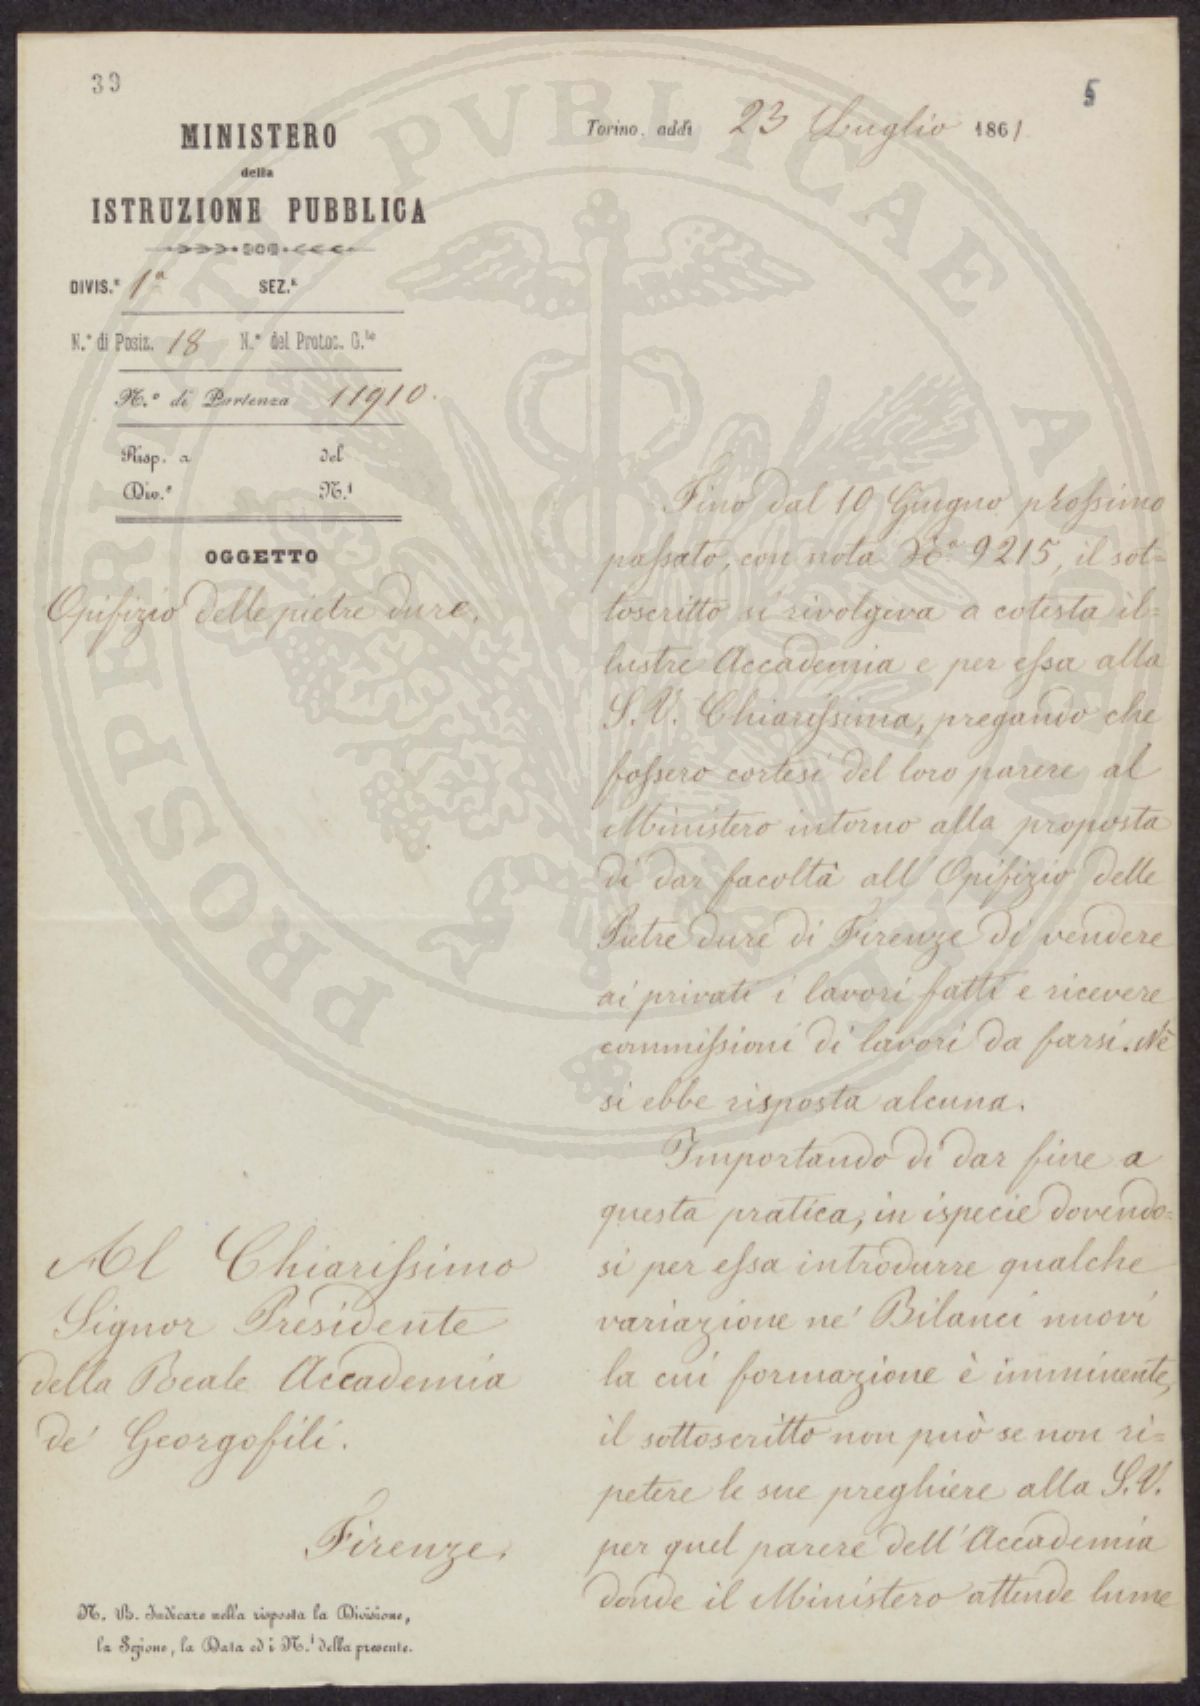 39
5
MINISTERO
della
ISTRUZIONE PUBBLICA
Torino, addì 23 Luglio 1861
DIVIS.e 1a SEZ.e
N.° di Posiz. 18 N.° del Protoc. G.le
N.° di Partenza 11910.
Risp. a del
Div.e N.i
OGGETTO
Opifizio delle pietre dure.
Fino dal 10 Giugno prossimo
passato, con nota N.° 9215, il sot=
toscritto si rivolgeva a cotesta il=
lustre Accademia e per essa alla
S.V. Chiarissima, pregando che
fossero cortesi del loro parere al
Ministero intorno alla proposta
di dar facoltà all'Opifizio delle
Pietre dure di Firenze di vendere
ai privati i lavori fatti e ricevere
commissioni di lavori da farsi. Nè
si ebbe risposta alcuna.
Importando di dar fine a
questa pratica, in ispecie dovendo=
si per essa introdurre qualche
variazione ne' Bilanci nuovi
la cui formazione è imminente,
il sottoscritto non può se non ri=
petere le sue preghiere alla S.V.
per quel parere dell'Accademia
donde il Ministero attende lume
Al Chiarissimo
Signor Presidente
della Reale Accademia
de' Georgofili.
Firenze.
N. B. Indicare nella risposta la Divisione,
la Sezione, la Data ed i N.i della presente.
PROSPERITATI PVBLICAE AVGENDAE